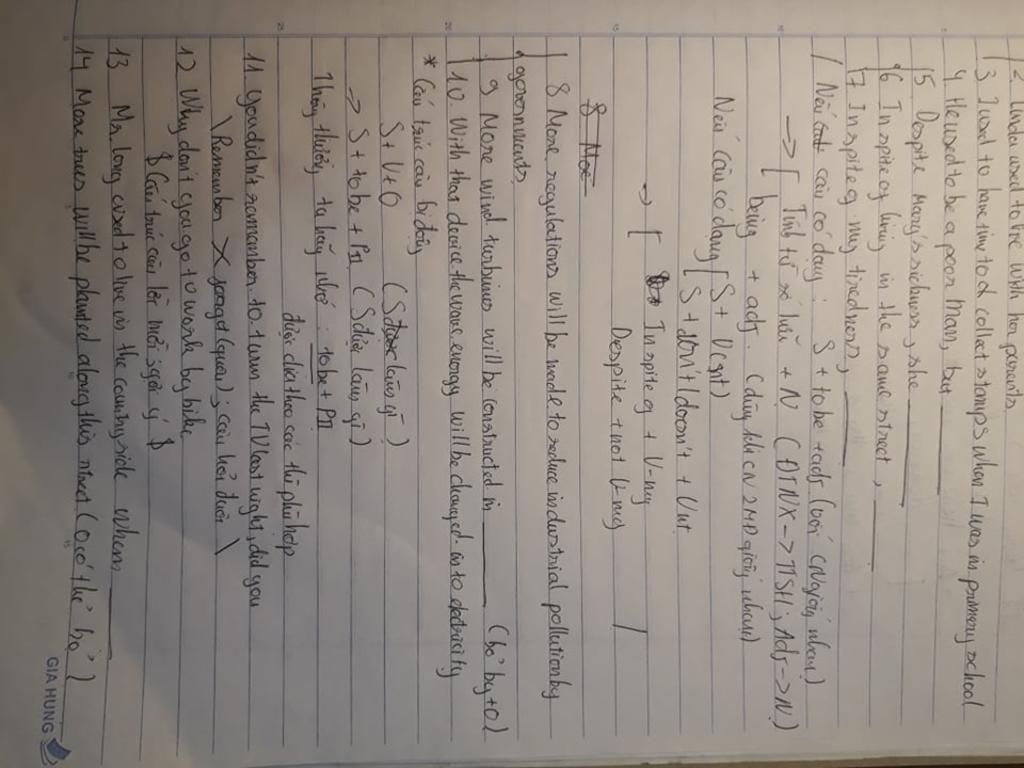 2 Linda used to live with her parents
3 I used to have tiny to collect stamps when I was in primery school
4 He used to be a poor man, but
5 Despite Mary's sickness, she
6 Inspite of living in the same street,
7 Inspite of my tiredness,
Nếu câu có dạng : S + to be + adj (với CN giống nhau)
-> [ Tính từ sở hữu + N ( ĐTNX -> TTSH ; Adj -> N )
being + adj. (dùng khi CN 2 MĐ giống nhau)
Nếu câu có dạng [ S + V(CĐT)
[ S + didn't / doesn't + Vnt
-> [ Inspite of + V-ing
Despite + not V-ing
8 More regulations will be made to reduce industrial pollution by
governments
9 More wind turbines will be constructed in (bỏ by + O)
10 With this device the wave energy will be changed into electricity
* Cấu trúc câu bị động
S + V + O ( S làm gì )
-> S + to be + PII ( S được làm gì )
Thông thường ta hãy nhớ : to be + PII
được chia theo các thì phù hợp
11 you didn't remember to turn the TV last night, did you
\ Remember X forget (quên) ; câu hỏi đuôi \
12 Why don't you go to work by bike
$ Cấu trúc câu lời mời gợi ý $
13 Mr. long used to live in the countryside when
14 More trees will be planted along this street ( O có thể bỏ )
GIA HƯNG